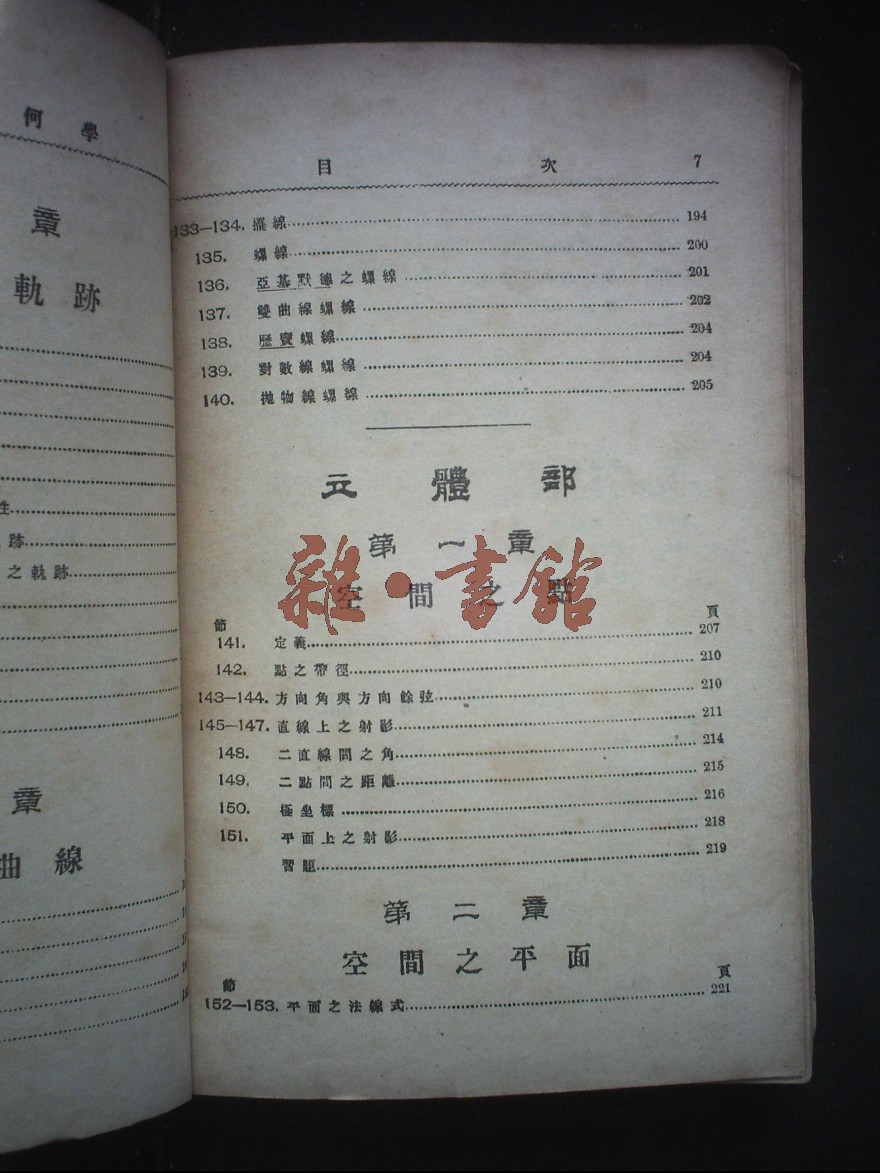 何學
章
軌跡
性
跡
之軌跡
章
曲線
目次 7
133—134. 擺線 194
135. 螺線 200
136. 亞基默德之螺線 201
137. 雙曲線螺線 202
138. 歷寶螺線 204
139. 對數線螺線 204
140. 拋物線螺線 205
立體部
第一章
空間之點
雜·書館
節 頁
141. 定義 207
142. 點之帶徑 210
143—144. 方向角與方向餘弦 210
145—147. 直線上之射影 211
148. 二直線間之角 214
149. 二點間之距離 215
150. 極坐標 216
151. 平面上之射影 218
習題 219
第二章
空間之平面
節 頁
152—153. 平面之法線式 221